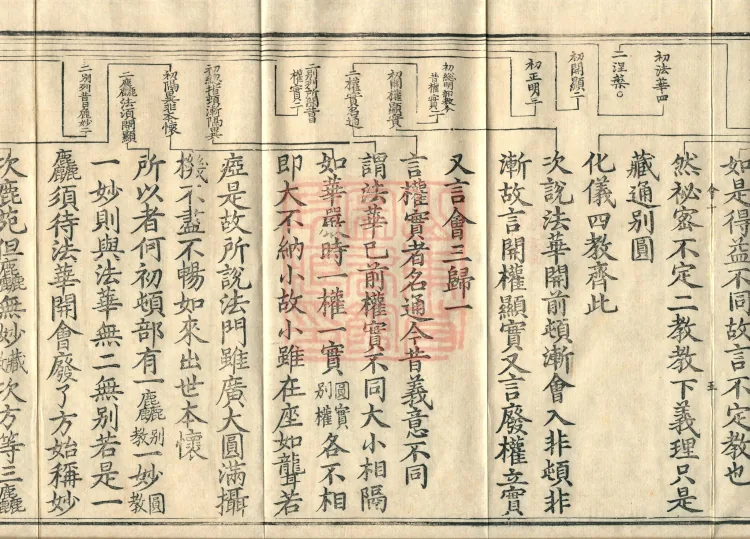 如是得益不同故言不定教也
然祕密不定二教教下義理只是
藏通別圓
化儀四教齊此
次說法華開前頓漸會入非頓非
漸故言開權顯實又言廢權立實
又言會三歸一
言權實者名通今昔義意不同
謂法華已前權實不同大小相隔
如華嚴時一權一實圓實別權各不相
即大不納小故小雖在座如聾若
瘂是故所說法門雖廣大圓滿攝
機不盡不暢如來出世本懷
所以者何初頓部有一麤別教一妙圓教
一妙則與法華無二無別若是一
麤須待法華開會廢了方始稱妙
次鹿苑但麤無妙藏次方等三麤
初法華四
二涅槃。
初開顯二
初正明二
初開權顯實
二權實名通
初隔異乖本懷
二麤法須開顯
二別列昔日麤妙二
五